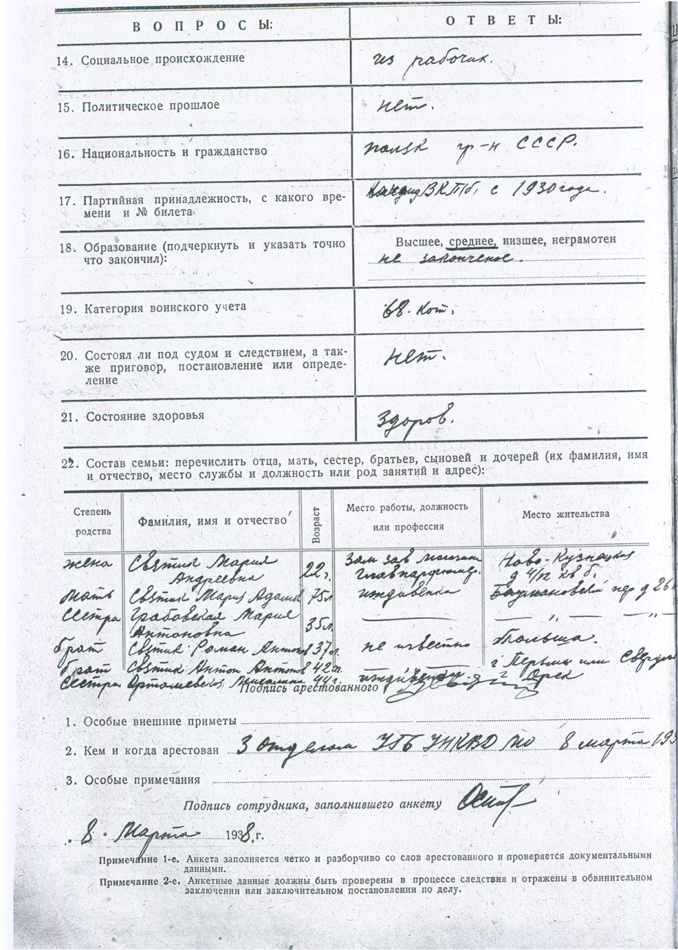 ВОПРОСЫ: ОТВЕТЫ:
14. Социальное происхождение из рабочих.
15. Политическое прошлое нет.
16. Национальность и гражданство поляк гр-н СССР.
17. Партийная принадлежность, с какого вре-
мени и № билета ВКП/б. с 1930 года.
18. Образование (подчеркнуть и указать точно Высшее, среднее, низшее, неграмотен
что закончил): не законченое.
19. Категория воинского учета кат.
20. Состоял ли под судом и следствием, а так-
же приговор, постановление или опреде- нет.
ление
21. Состояние здоровья Здоров.
22. Состав семьи: перечислить отца, мать, сестер, братьев, сыновей и дочерей (их фамилия, имя
и отчество, место службы и должность или род занятий и адрес):
Степень родства Фамилия, имя и отчество Возраст Место работы, должность или профессия Место жительства
жена Святик Мария Зам зав
Андреевна 22 г. Ново-Кузнецкая
мать Святик Мария Адамов 75л иждивенка пер д 26
сестра Грабовская Мария
Антоновна 35л. — " — " —
брат Святик Роман Антонов 37л. не известно Польша.
брат Святик Антон Антонов 42 г. г Пермь или
сестра 44г. г Орск
Подпись арестованного
1. Особые внешние приметы
2. Кем и когда арестован 3 отделом УГБ УНКВД МО 8 марта 193
3. Особые примечания
Подпись сотрудника, заполнившего анкету
8. Марта 1938, г.
Примечание 1-е. Анкета заполняется четко и разборчиво со слов арестованного и проверяется документальными
данными.
Примечание 2-е. Анкетные данные должны быть проверены в процессе следствия и отражены в обвинительном
заключении или заключительном постановлении по делу.